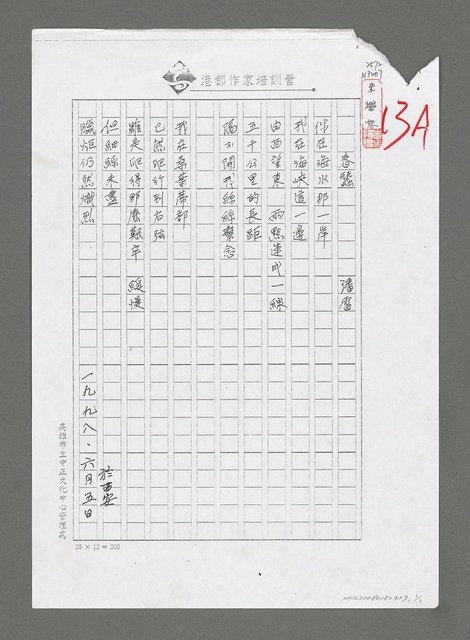 港都作家培訓營
13A
春蠶
潘壓
你在海水那一岸
我在海峽這一邊
由西望東 兩點連成一線
五千公里的長距
隔不開我絲絲繫念
我在桑葉蒂部
已然爬行到右弦
雖是爬得那麼艱辛 緩慢
但細絲未盡
臘炬仍然熾烈
於西安
一九九八、六月五日
高雄市立中正文化中心管理處
25 × 12 = 300